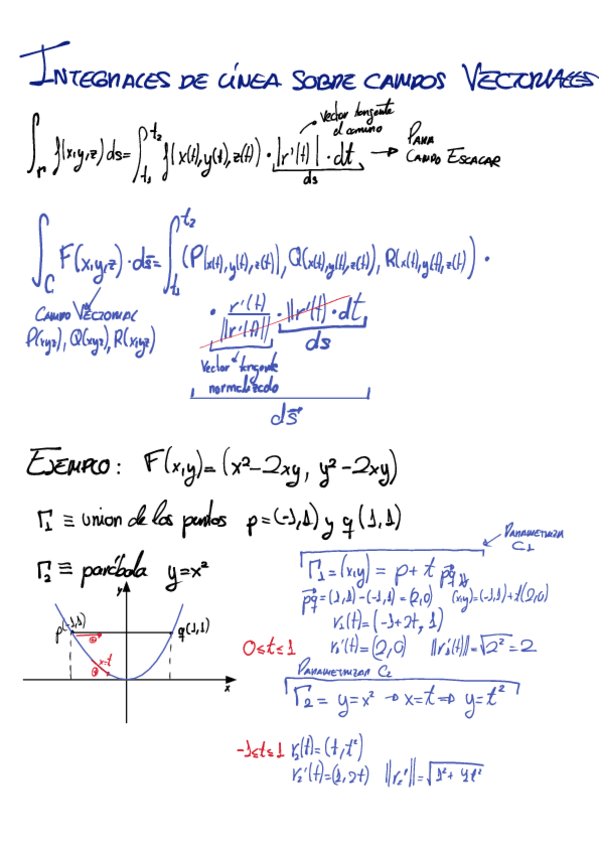 INTEGRALES DE LÍNEA SOBRE CAMPOS VECTORIALES
Vector tangente
el camino
∫_Γ f(x,y,z) ds = ∫_{t₁}^{t₂} f(x(t),y(t),z(t)) · |r'(t)| · dt → PARA
CAMPO ESCALAR
ds
∫_C F(x,y,z) · ds̄ = ∫_{t₁}^{t₂} (P(x(t),y(t),z(t)), Q(x(t),y(t),z(t)), R(x(t),y(t),z(t))) ·
CAMPO VECTORIAL
P(xyz), Q(xyz), R(xyz)
· r'(t)/||r'(t)|| · ||r'(t)|| · dt
ds
Vector tangente
normalizado
ds⃗
EJEMPLO: F(x,y) = (x²-2xy, y²-2xy)
Γ₁ ≡ union de los puntos p=(-1,1) y q(1,1)
Γ₂ ≡ parábola y=x²
PARAMETRIZA
C1
Γ₁ = (x,y) = p + t p̄q̄
p̄q̄ = (1,1)-(-1,1) = (2,0) (x,y)=(-1,1)+t(2,0)
r₁(t) = (-1+2t, 1)
0≤t≤1 r₁'(t) = (2,0) ||r₁'(t)|| = √2² = 2
y
p(-1,1)
q(1,1)
x=t
x
PARAMETRIZAR C₂
Γ₂ = y=x² → x=t ⇒ y=t²
-1≤t≤1 r₂(t) = (t,t²)
r₂'(t) = (1,2t) ||r₂'|| = √1²+4t²